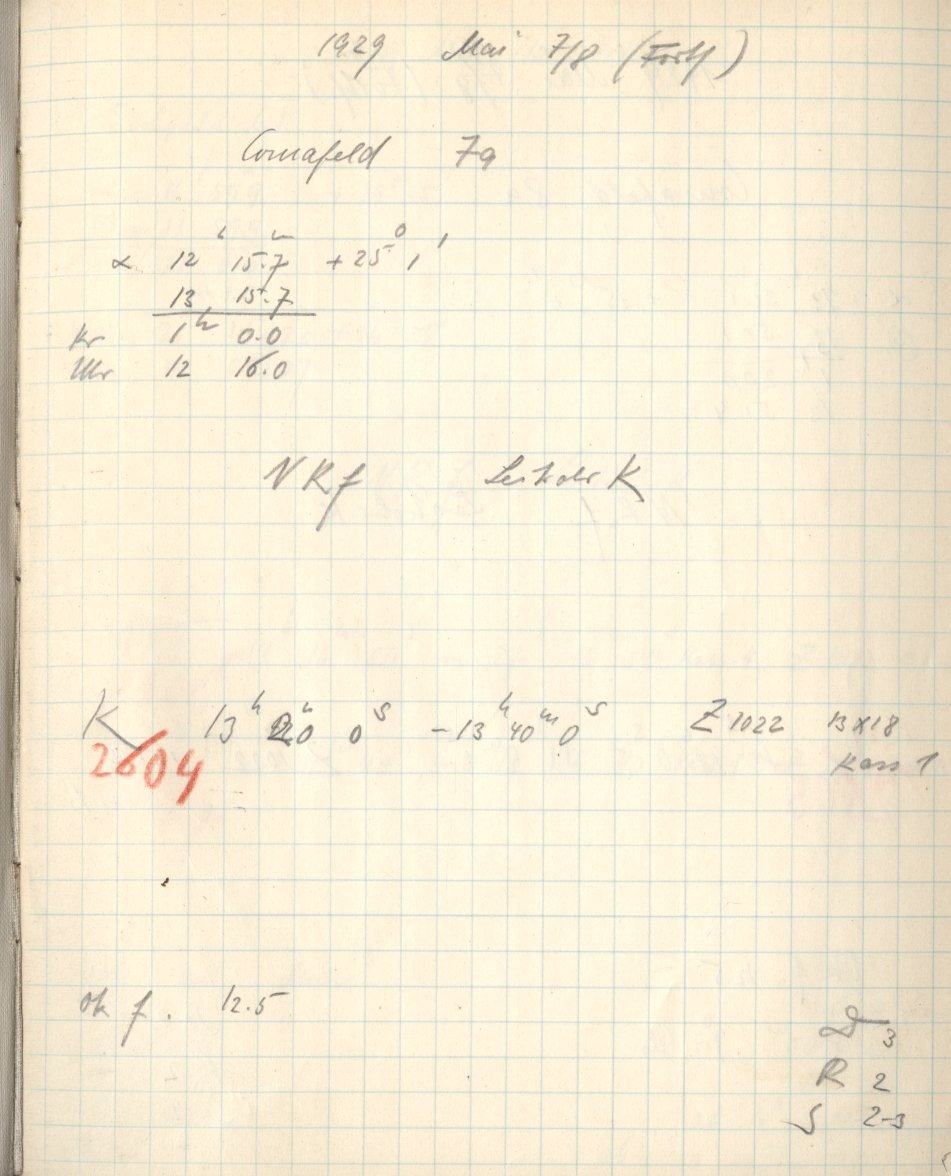 1929 Mai 7/8 (Forts)
Comafeld 7a
α 12 h 15.7 m + 25 ° 1 '
13 15.7
Kr 1 h 0.0
Uhr 12 16.0
N R f Leitstr K
K 13 h 20 m 0 s - 13 h 40 m 0 s Z 1022 13 x 18
2604 Kass 1
ok f. 12.5
D 3
R 2
S 2-3